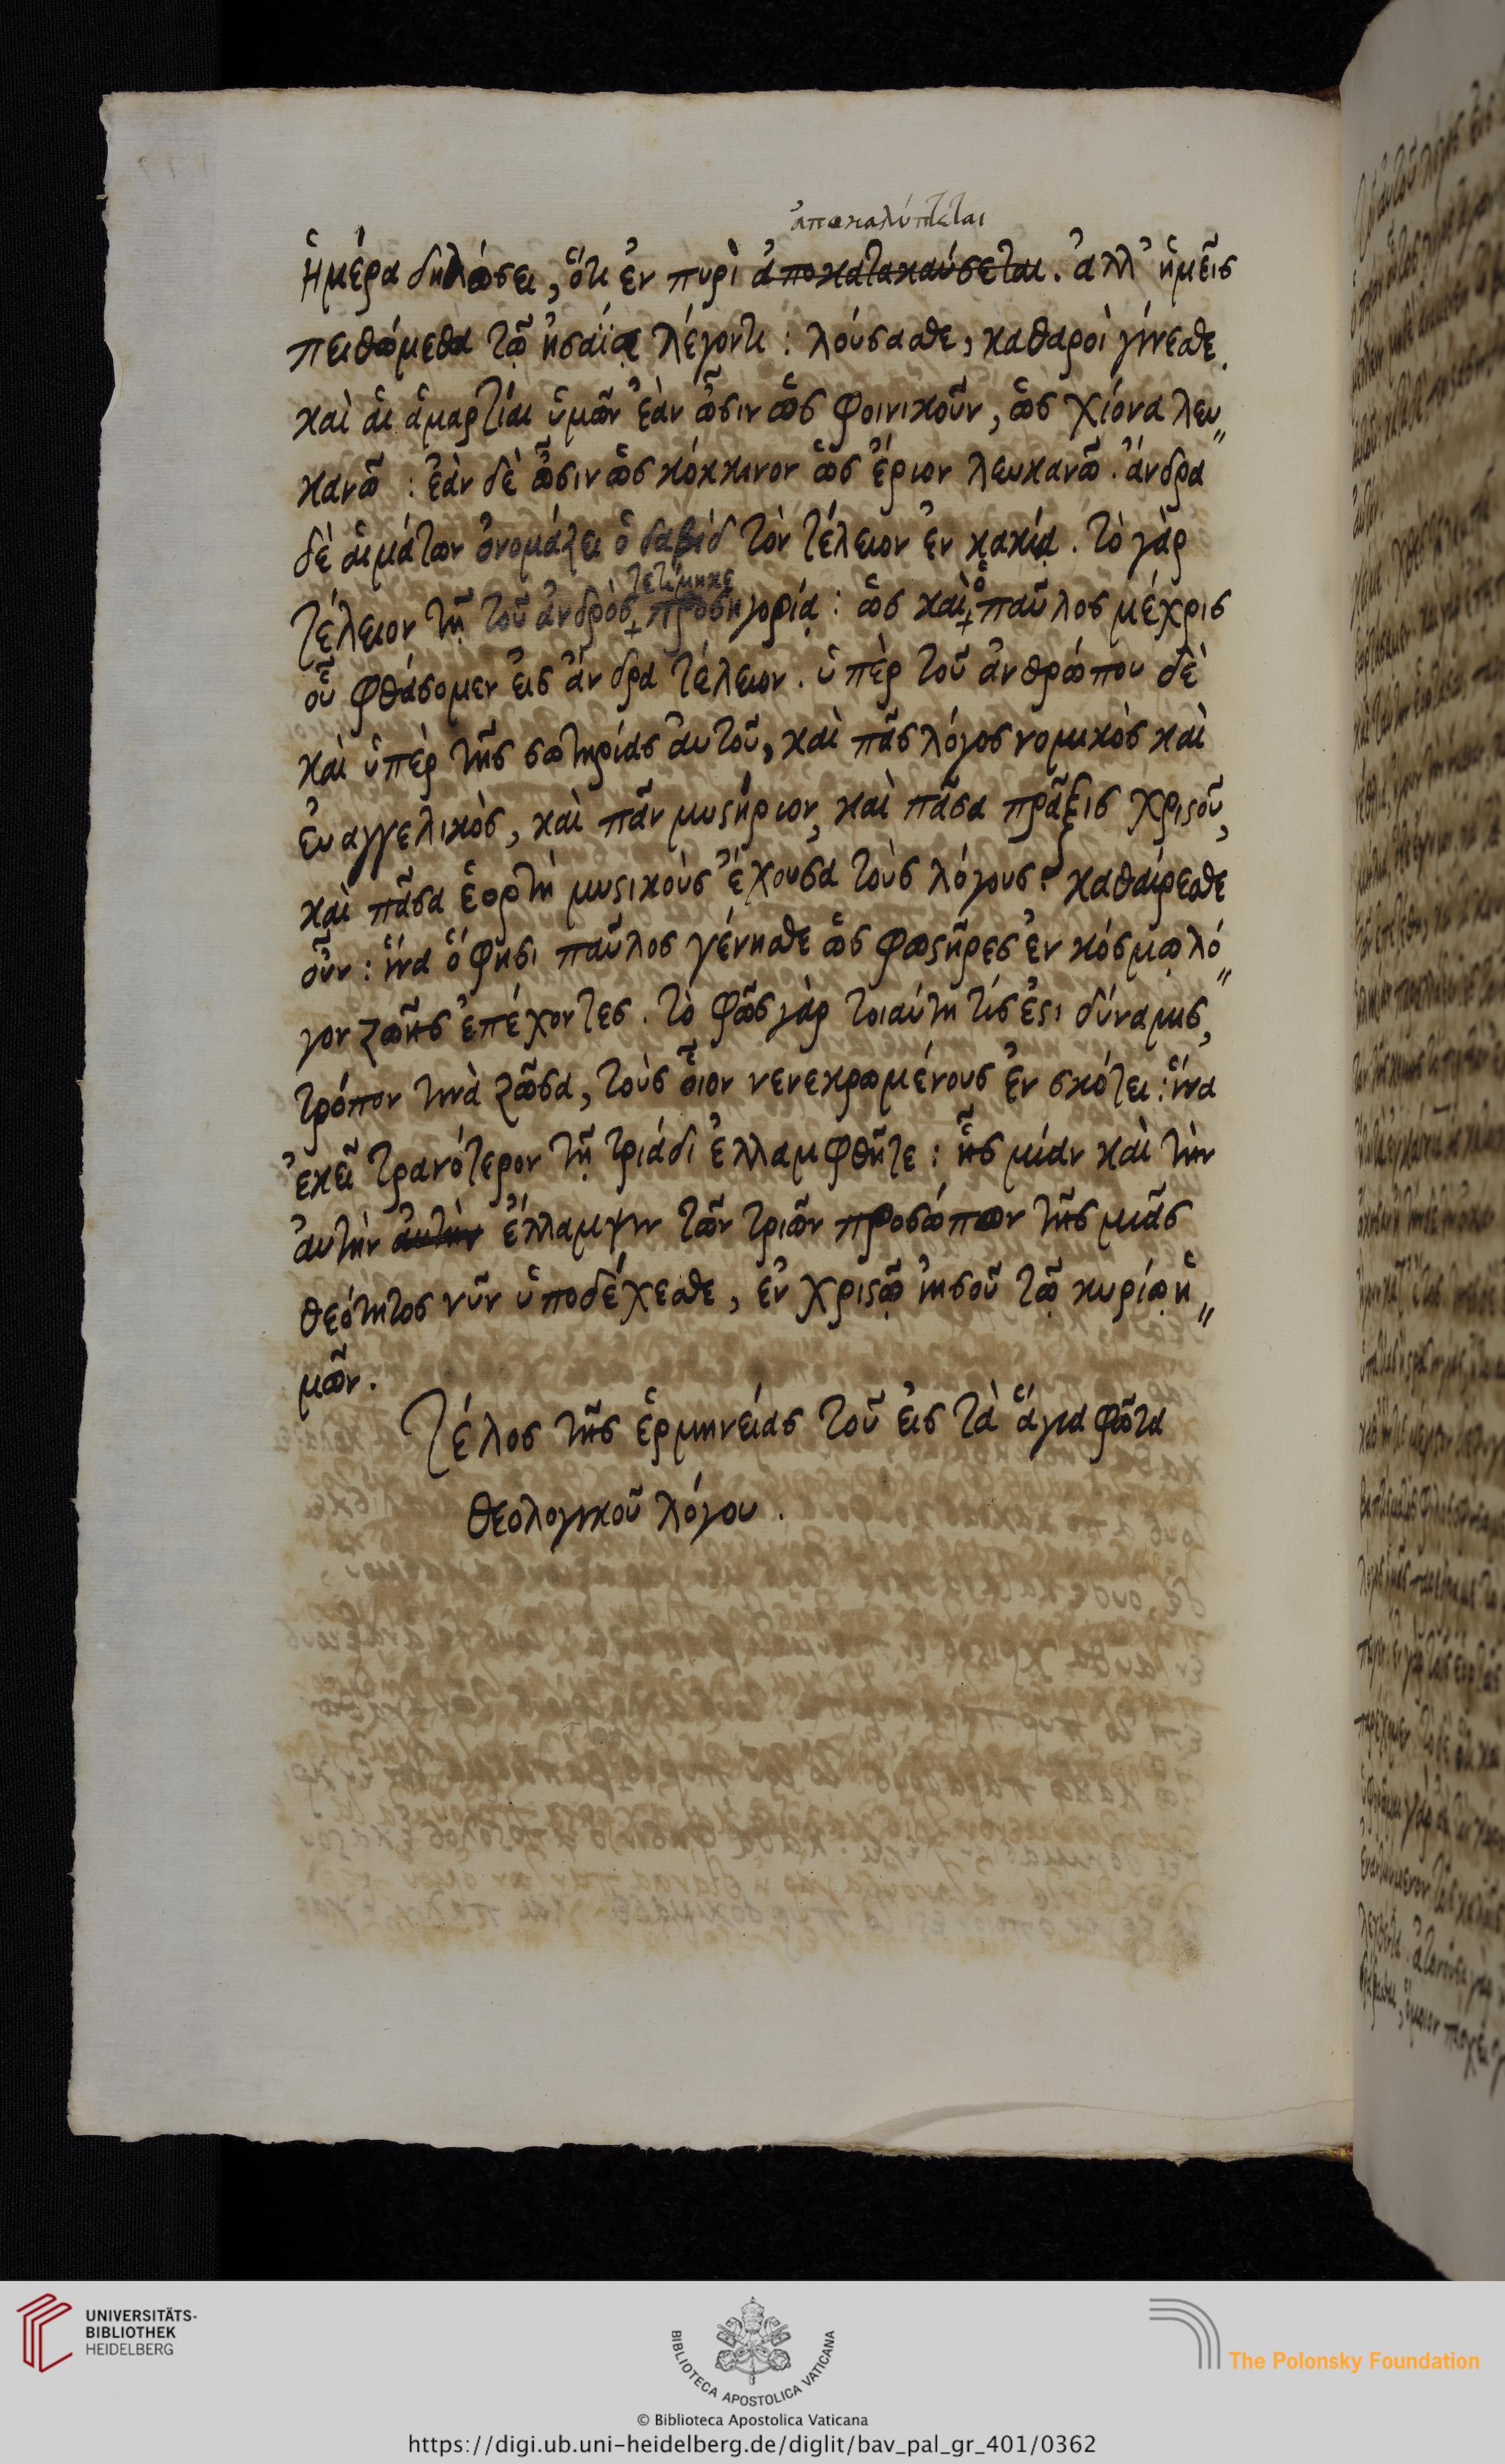 ἀποκαλύπτεται
ἡμέρα δηλώσει, ὅτι ἐν πυρὶ ἀποκατακαύσεται. ἀλλ' ἡμεῖς
πειθώμεθα τῷ ἠσαΐᾳ λέγοντι: λούσασθε, καθαροὶ γίνεσθε,
καὶ αἱ ἁμαρτίαι ὑμῶν ἐὰν ὦσιν ὡς φοινικοῦν, ὡς χιόνα λευ„
κανῶ: ἐὰν δὲ ὦσιν ὡς κόκκινον ὡς ἔριον λευκανῶ. ἄνδρα
δὲ αἱμάτων ὀνομάζει ὁ δαβὶδ τὸν τέλειον ἐν κακίᾳ. τὸ γὰρ
τετίμηκε ὁ
τέλειον τῇ τοῦ ἀνδρὸς + προσηγορίᾳ: ὡς καὶ + παῦλος μέχρις
οὗ φθάσομεν εἰς ἄνδρα τέλειον. ὑπὲρ τοῦ ἀνθρώπου δὲ
καὶ ὑπὲρ τῆς σωτηρίας αὐτοῦ, καὶ πᾶς λόγος νομικὸς καὶ
εὐαγγελικὸς, καὶ πᾶν μυςήριον, καὶ πᾶσα πρᾶξις χριςοῦ,
καὶ πᾶσα ἑορτὴ μυςικοὺς ἔχουσα τοὺς λόγους. καθαίρεσθε
οὖν: ἵνα ὅ φησι παῦλος γένησθε ὡς φωςῆρες ἐν κόσμῳ λό„
γον ζωῆς ἐπέχοντες. τὸ φῶς γὰρ τοιαύτη τίς ἐςι δύναμις,
τρόπον τινὰ ζῶσα, τοὺς οἷον νενεκρωμένους ἐν σκότει: ἵνα
ἐκεῖ τρανότερον τῇ τριάδι ἐλλαμφθῆτε: ἧς μίαν καὶ τὴν
αὐτὴν αὐτὴν ἔλλαμψιν τῶν τριῶν προσώπων τῆς μιᾶς
θεότητος νῦν ὑποδέχεσθε, ἐν χριςῷ ἰησοῦ τῷ κυρίῳ ἡ„
μῶν.
Τέλος τῆς ἑρμηνείας τοῦ εἰς τὰ ἅγια φῶτα
θεολογικοῦ λόγου.
UNIVERSITÄTS-
BIBLIOTHEK
HEIDELBERG
BIBLIOTECA APOSTOLICA VATICANA
The Polonsky Foundation
© Biblioteca Apostolica Vaticana
https://digi.ub.uni-heidelberg.de/diglit/bav_pal_gr_401/0362